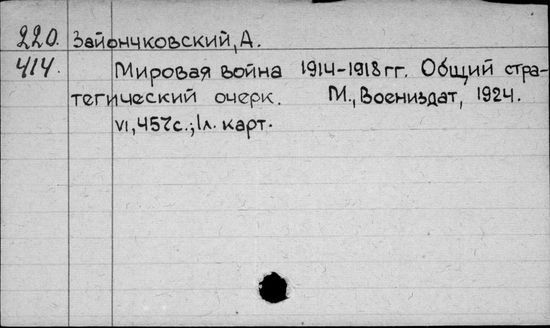 220. Зайончковский, А.
414. Мировая война 1914-1918 гг. Общий стра-
тегический очерк. М., Воениздат, 1924.
VI, 457 с.; 1 л. карт.